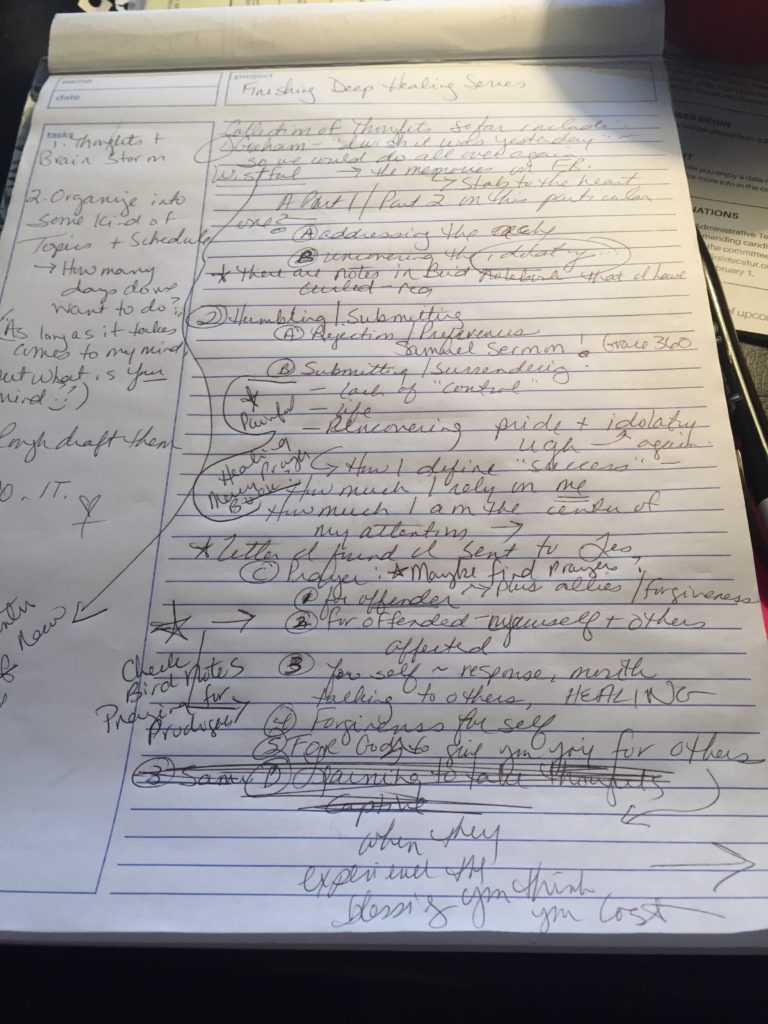 name
date
project
Finishing Deep Healing Series
tasks
1. Thoughts +
Brain Storm
2. Organize into
some kind of
Topics + Schedule
→ How many
days do we
want to do?
(As long as it takes
comes to my mind,
but what is your
mind :?)
Rough draft them
DO. IT.
Collection of Thoughts so far include:
① "I wish it was yesterday" -
so we would do all over again
Wistful → the memories on FB.
↳ Stab to the heart
A Part 1 / Part 2 in this particular
one?
Ⓐ addressing the
Ⓑ uncovering the idolatry
* There are notes in Bird notebook that I have
② Humbling / Submitting
Ⓐ Rejection / Preferences
Samuel Sermon! Grace 360
Ⓑ Submitting / Surrendering
* Painful
- lack of "control"
- life
- Uncovering pride + idolatry
ugh → again.
Healing Prayer
Mercy
Book?
→ How I define "success" -
How much I rely on me
How much I am the center of
my attention →
* Letter I found I sent to
Ⓒ Prayer: * Maybe find prayers
① for offender → plus allies / forgiveness
→ ② for offended - myself + others
affected
Check
Bird notes
Praying for
Prodigals
③ for self ~ response, mouth
talking to others, HEALING
④ Forgivenss for self
⑤ For God to give you joy for others
③ Sam ① Learning to take Thoughts
Captive
when they
experience the
blessing you think
you lost
of New
NATIONS
administrative
the committee